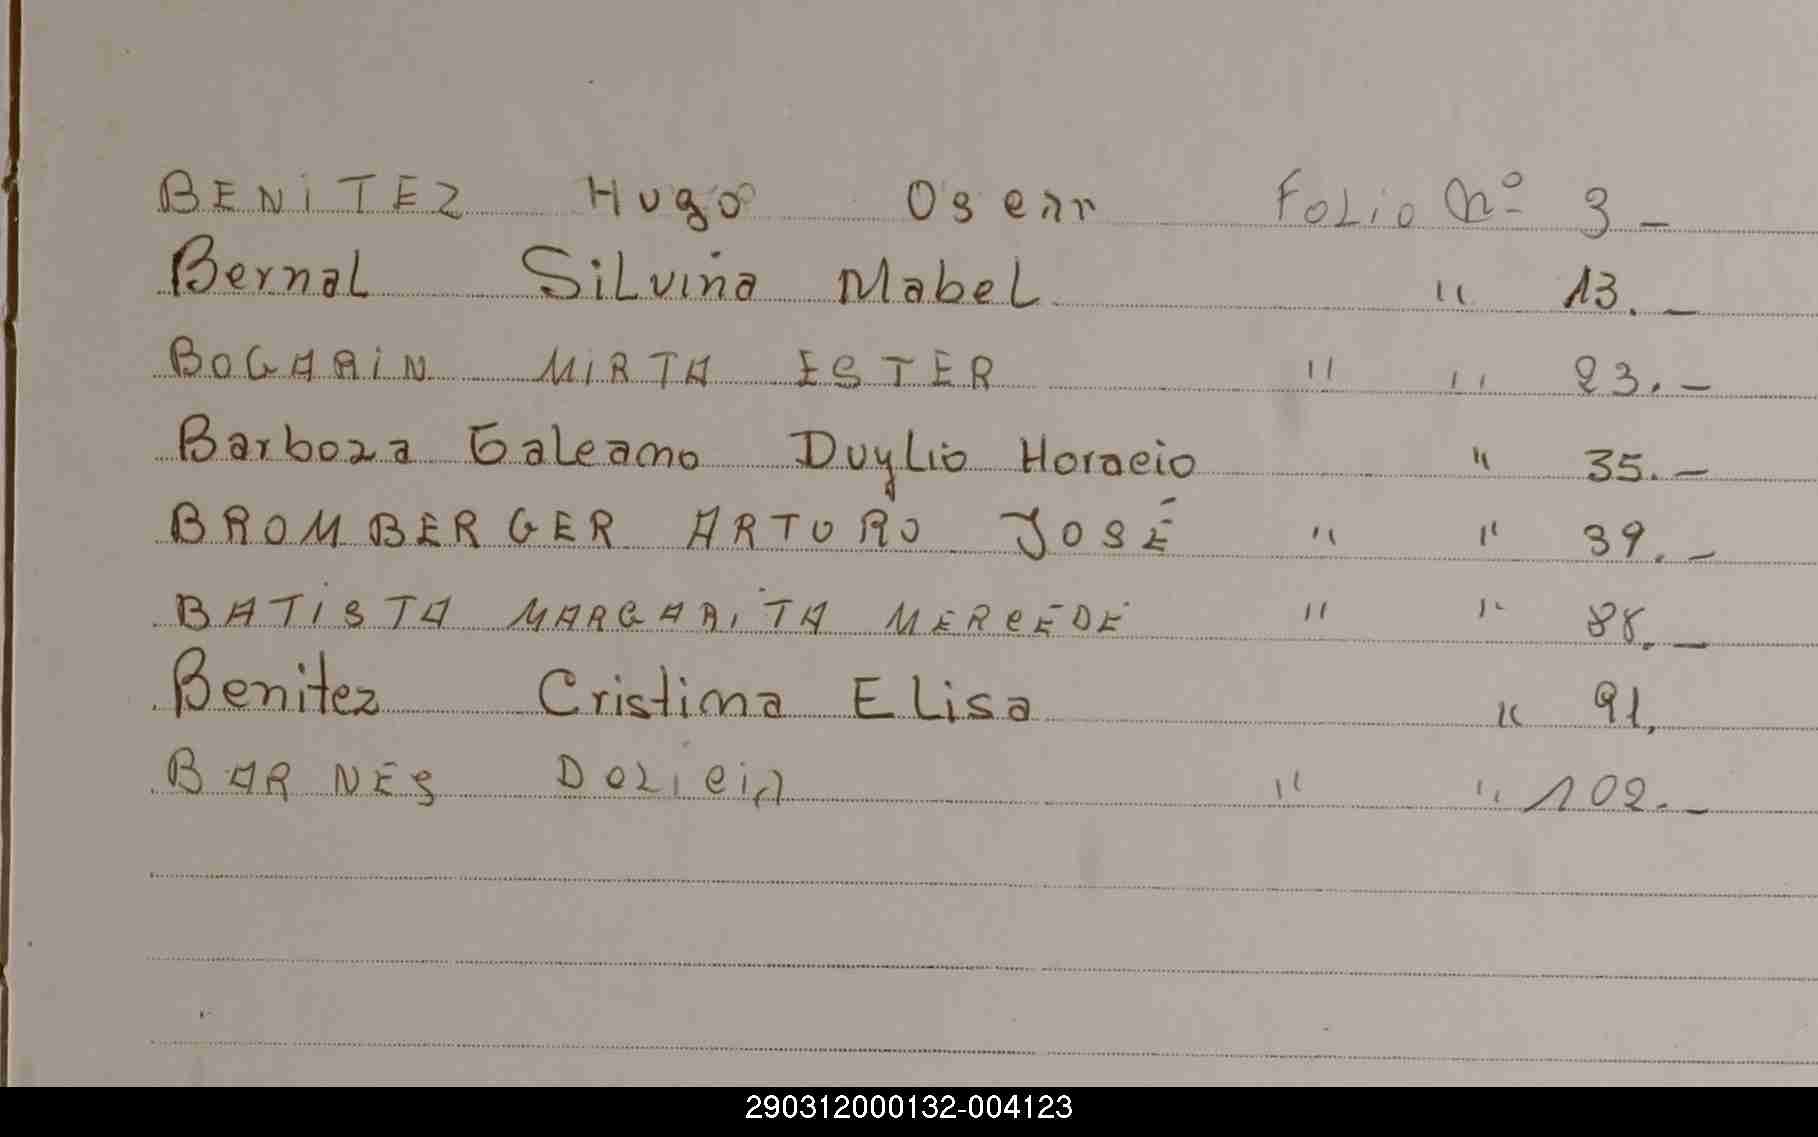 BENITEZ Hugo Oscar Folio Nº 3 -
Bernal Silvina Mabel " 13. -
BOGARIN MIRTA ESTER " " 23. -
Barboza Galeano Duylio Horacio " 35. -
BROMBERGER ARTURO JOSÉ " " 39. -
BATISTA MARGARITA MERCEDE " " 88. -
Benitez Cristina Elisa " 91.
BARNES DeLicia " " 102. -
290312000132-004123